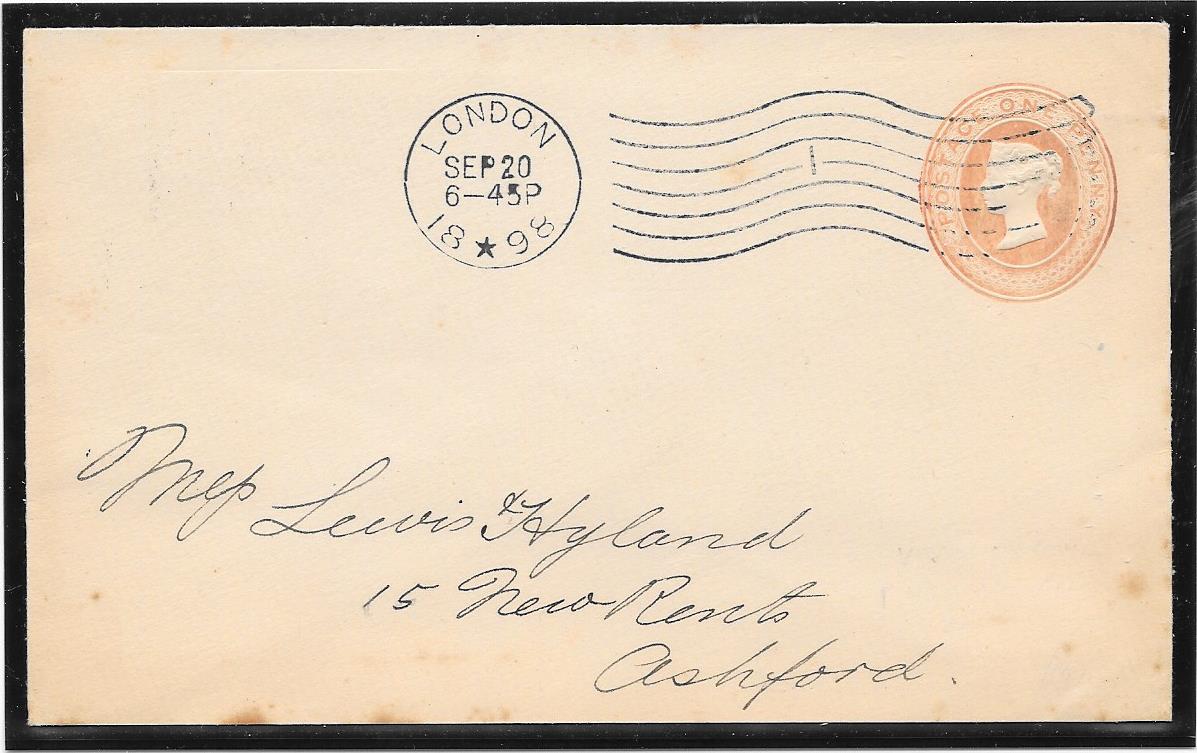 LONDON
SEP 20
6-45P
18 ★ 98
1
POSTAGE ONE PENNY
Mess Lewis & Hyland
15 New Rents
Ashford.